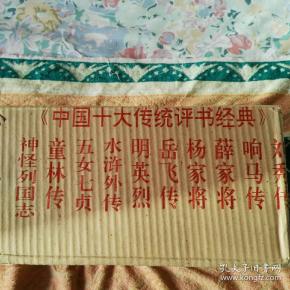 《中国十大传统评书经典》
响马传
薛家将
杨家将
岳飞传
明英烈
水浒外传
五女七贞
童林传
神怪列国志
孔夫子旧书网